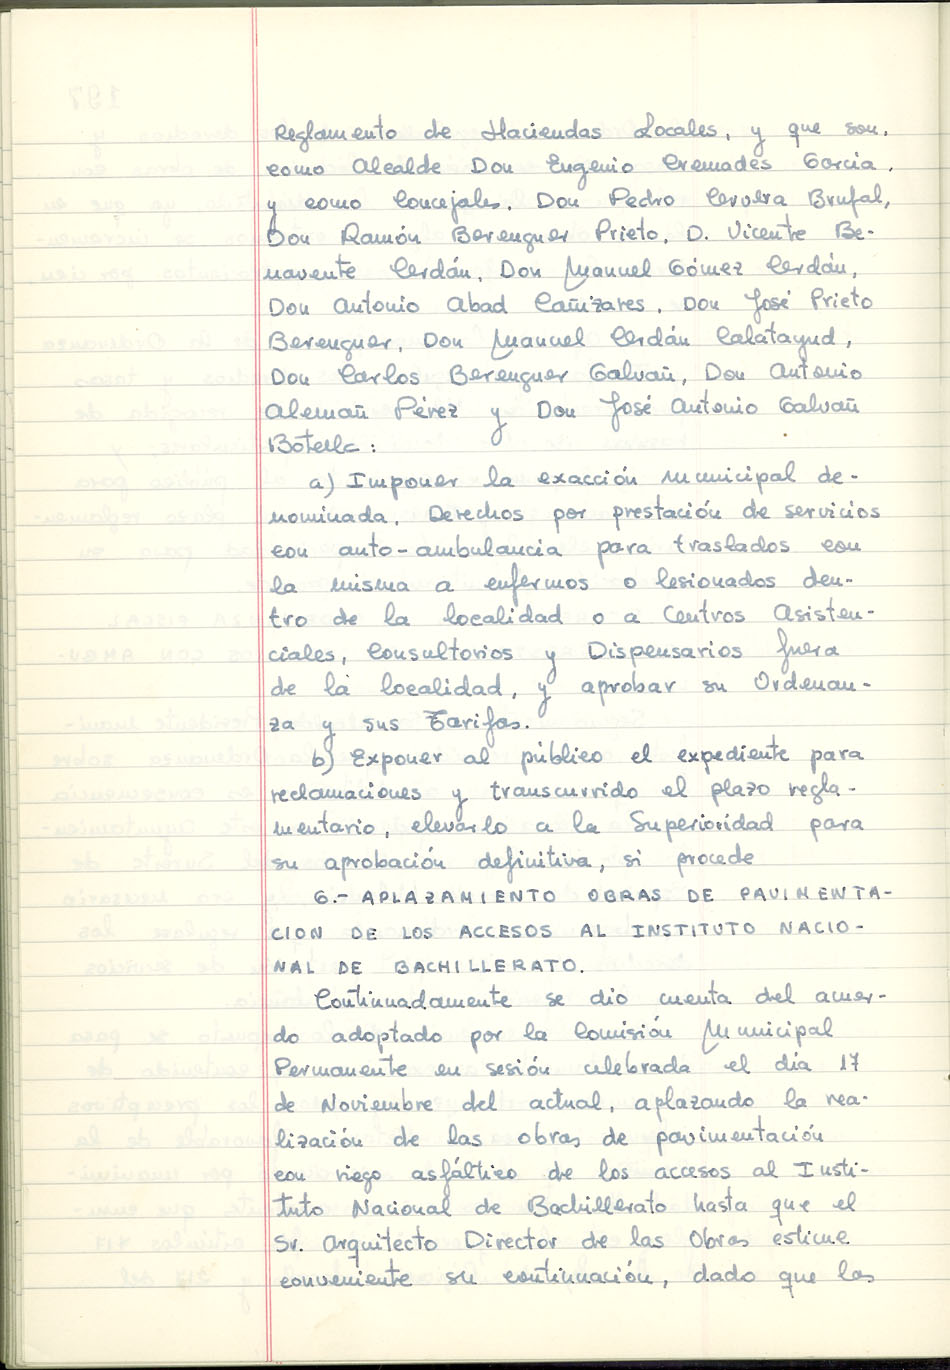 Reglamento de Haciendas Locales, y que son,
como Alcalde Don Eugenio Cremades García,
y como Concejales, Don Pedro Cervera Brufal,
Don Ramón Berenguer Prieto, D. Vicente Be-
navente Cerdán, Don Manuel Gómez Cerdán,
Don Antonio Abad Cañizares, Don José Prieto
Berenguer, Don Manuel Cerdán Calatayud,
Don Carlos Berenguer Galvañ, Don Antonio
Alemañ Pérez y Don José Antonio Galvañ
Botella:
a) Imponer la exacción municipal de-
nominada, Derechos por prestación de servicios
con auto-ambulancia para traslados con
la misma a enfermos o lesionados den-
tro de la localidad o a Centros Asisten-
ciales, Consultorios y Dispensarios fuera
de la localidad, y aprobar su Ordenan-
za y sus Tarifas.
b) Exponer al público el expediente para
reclamaciones y transcurrido el plazo regla-
mentario, elevarlo a la Superioridad para
su aprobación definitiva, si procede
6.- APLAZAMIENTO OBRAS DE PAVIMENTA-
CION DE LOS ACCESOS AL INSTITUTO NACIO-
NAL DE BACHILLERATO.
Continuadamente se dio cuenta del acuer-
do adoptado por la Comisión Municipal
Permanente en sesión celebrada el día 17
de Noviembre del actual, aplazando la rea-
lización de las obras de pavimentación
con riego asfáltico de los accesos al Insti-
tuto Nacional de Bachillerato hasta que el
Sr. Arquitecto Director de las Obras estime
conveniente su continuación, dado que los